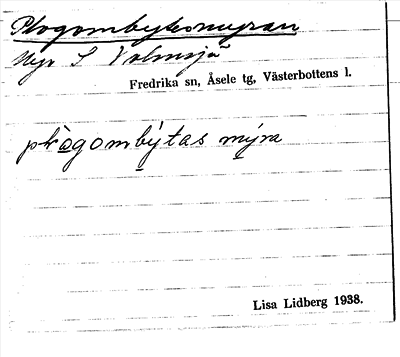 Plogombyteomyran
Myr S Volmsjö
Fredrika sn, Åsele tg, Västerbottens l.
plògombýtas mýra
Lisa Lidberg 1938.